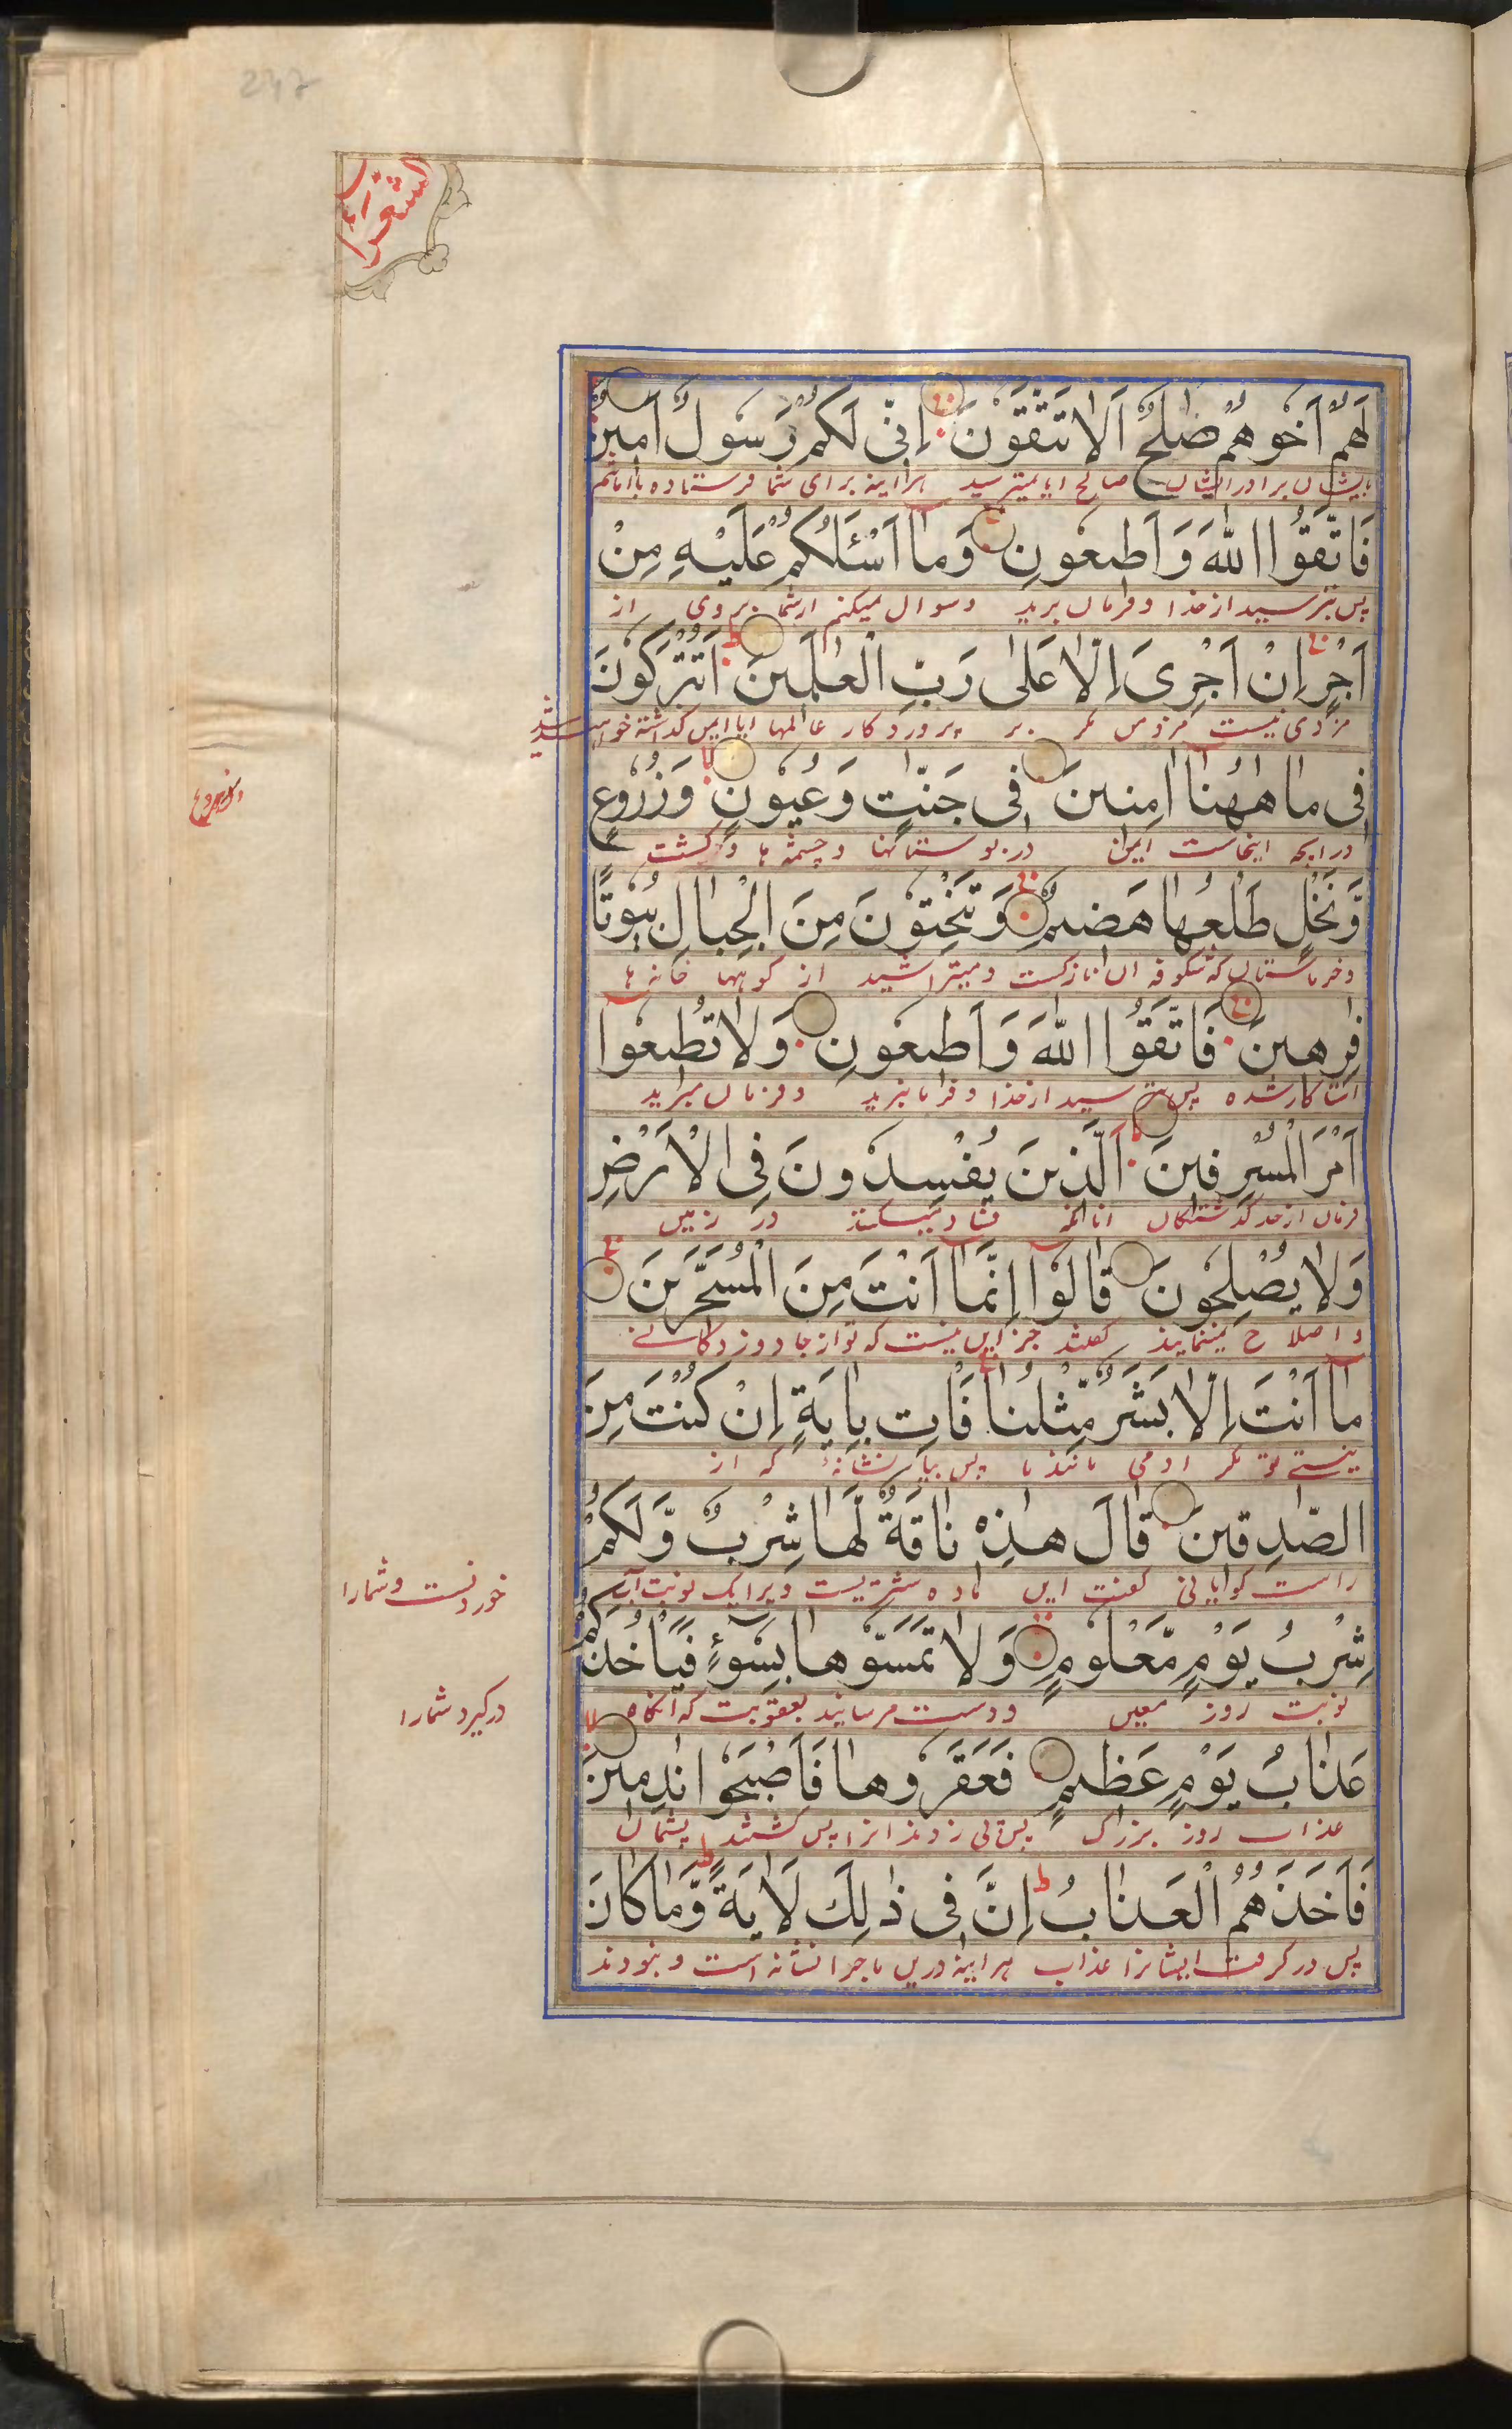 الشعراء
لَهُمْ اَخُوهُمْ صٰلِحٌ اَلَا تَتَّقُوْنَ اِنّٖى لَكُمْ رَسُولٌ اَمٖينٌ
بایشان برادر ایشان صالح ایا نمیترسید هراینه برای شما فرستاده باامانتم
فَاتَّقُوا اللّٰهَ وَاَطٖيعُونِ وَمٰا اَسْئَلُكُمْ عَلَيْهِ مِنْ
پس بترسید از خدا و فرمان برید و سوال نمیکنم از شما بروی از
اَجْرٍ اِنْ اَجْرِىَ اِلّٰا عَلٰى رَبِّ الْعٰلَمٖينَ اَتُتْرَكُونَ
مزدی نیست مزد من مکر بر پروردکار عالمها ایا ایمن کذاشته خواهید شد
فٖى مٰا هٰهُنٰا اٰمِنٖينَ فٖى جَنّٰتٍ وَعُيُونٍ وَزُرُوعٍ
درانچه اینجاست ایمن در بوستانها و چشمه ها و کشت
وَّنَخْلٍ طَلْعُهٰا هَضٖيمٌ وَتَنْحِتُونَ مِنَ الْجِبٰالِ بُيُوتًا
و خرماستان که شکوفه ان نازکست و میتراشید از کوهها خانه ها
فٰرِهٖينَ فَاتَّقُوا اللّٰهَ وَاَطٖيعُونِ وَلٰا تُطٖيعُوا
استا کار شده پس بترسید از خدا و فرمانبرید و فرمان مبرید
اَمْرَ الْمُسْرِفٖينَ اَلَّذٖينَ يُفْسِدُونَ فِى الْاَرْضِ
فرمان از حد کذشتکان انانکه فساد میکنند در زمین
وَلٰا يُصْلِحُونَ قٰالُوا اِنَّمٰا اَنْتَ مِنَ الْمُسَحَّرٖينَ
و اصلاح نمینمایند کفتند جز این نیست که تو از جادو زدکانی
مٰا اَنْتَ اِلّٰا بَشَرٌ مِّثْلُنٰا فَاْتِ بِاٰيَةٍ اِنْ كُنْتَ مِنَ
نیستی تو مکر ادمی مانند ما پس بیار نشانهٔ که از
الصّٰدِقٖينَ قٰالَ هٰذِهٖ نٰاقَةٌ لَّهٰا شِرْبٌ وَّلَكُمْ
راست کویانی کفت این ماده شتریست ویرا یک نوبت آب
خوردنست و شما را
شِرْبُ يَوْمٍ مَّعْلُومٍ وَلٰا تَمَسُّوهٰا بِسُوٓءٍ فَيَاْخُذَكُمْ
نوبت روز معین و دست مرسانید بعقوبت که آنکاه
درکیرد شما را
عَذٰابُ يَوْمٍ عَظٖيمٍ فَعَقَرُوهٰا فَاَصْبَحُوا نٰدِمٖينَ
عذاب روز بزرک پس پی زدند انرا پس کشتند پشیمان
فَاَخَذَهُمُ الْعَذٰابُ اِنَّ فٖى ذٰلِكَ لَاٰيَةً وَّمٰا كٰانَ
پس درکرفت ایشانرا عذاب هراینه درین ماجرا نشانه است و نبودند